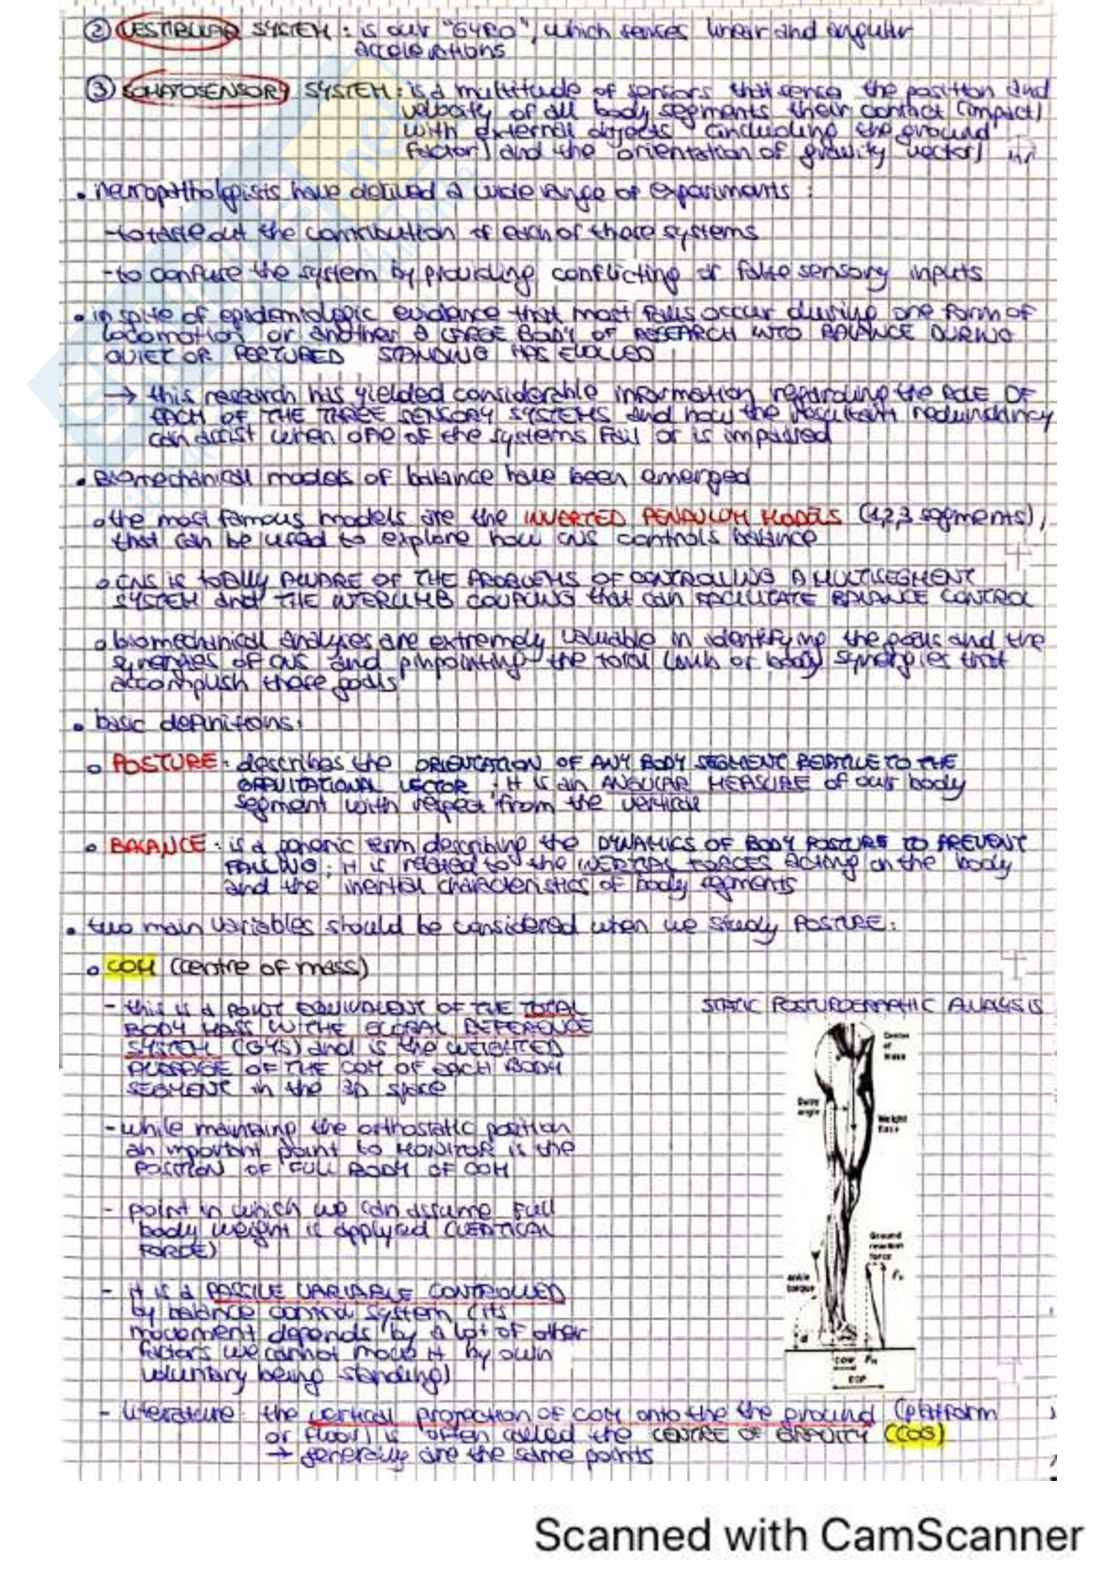 ② VESTIBULAR SYSTEM : is our "GYRO", which senses linear and angular
accelerations
③ SOMATOSENSORY SYSTEM : is a multitude of sensors that sense the position and
velocity of all body segments their contact (impact)
with external objects (including the ground
factor) and the orientation of gravity vector)
• neuropathologists have derived a wide range of experiments :
- to tease out the contribution of each of those systems
- to confuse the system by providing conflicting or false sensory inputs
• in spite of epidemiologic evidence that most falls occur during one form of
locomotion or another A LARGE BODY OF RESEARCH INTO BALANCE DURING
QUIET OR PERTURED STANDING HAS EVOLVED
→ this research has yielded considerable information regarding the ROLE OF
EACH OF THE THREE SENSORY SYSTEMS and how the resultant redundancy
can assist when one of the systems fail or is impaired
• Biomechanical models of balance have been emerged
o the most famous models are the INVERTED PENDULUM MODELS (1,2,3 segments),
that can be used to explore how CNS controls balance
o CNS is totally AWARE OF THE PROBLEMS OF CONTROLLING A MULTISEGMENT
SYSTEM and THE INTERLIMB COUPLING that can FACILITATE BALANCE CONTROL
o biomechanical analyses are extremely valuable in identifying the goals and the
synergies of CNS and pinpointing the total limb or body synergies that
accomplish those goals
• basic definitions:
o POSTURE : describes the ORIENTATION OF ANY BODY SEGMENT RELATIVE TO THE
GRAVITATIONAL VECTOR ; it is an ANGULAR MEASURE of our body
segment with respect from the vertical
o BALANCE : is a generic term describing the DYNAMICS OF BODY POSTURE TO PREVENT
FALLING ; it is related to the INERTIAL FORCES acting on the body
and the inertial characteristics of body segments
• two main variables should be considered when we study POSTURE:
o COM (centre of mass)
- this is a POINT EQUIVALENT OF THE TOTAL
BODY MASS WITHE GLOBAL REFERENCE
SYSTEM (GYS) and is the WEIGHTED
AVERAGE OF THE COM OF EACH BODY
SEGMENT in the 3D space
- while maintaing the orthostatic position
an important point to MONITOR is the
POSITION OF FULL BODY OF COM
- point in which we can assume full
body weight is applyied (VERTICAL
FORCE)
- it is a PASSIVE VARIABLE CONTROLLED
by balance control system (its
movement depends by a lot of other
factors we cannot move it by own
voluntary being standing)
STATIC POSTUROGRAPHIC ANALYSIS
Center
of
Mass
Sway
angle
Weight
Force
Ground
reaction
force
Ankle
torque
Fv
d
COM FH
COP
- literature : the vertical projection of COM onto the the ground (platform
or floor) is often called the CENTRE OF GRAVITY (COG)
→ generally are the same points
Scanned with CamScanner